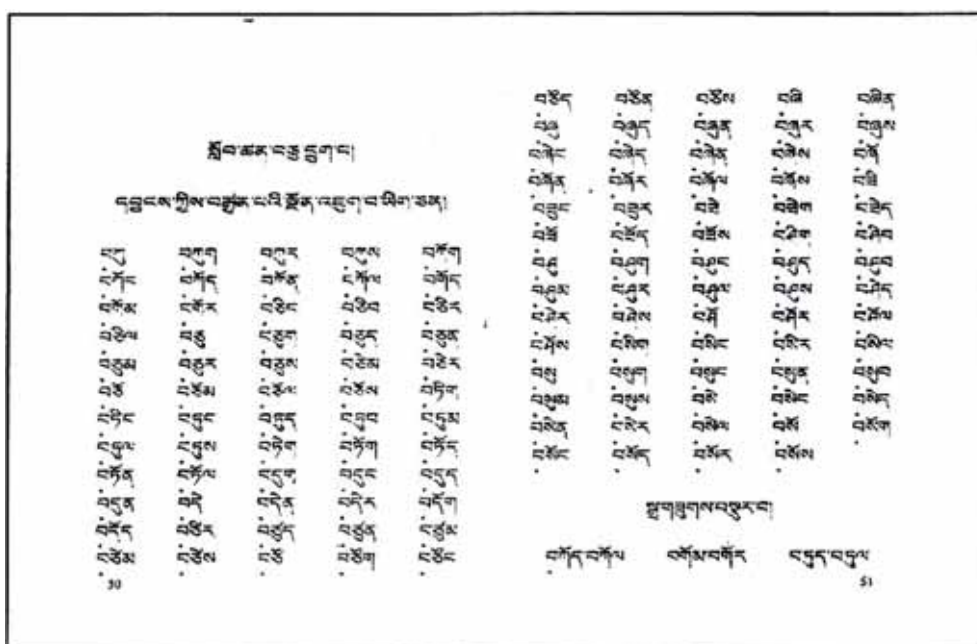 སློབ་ཚན་བཅུ་དྲུག་པ།
དབྱངས་ཀྱིས་བརྒྱན་པའི་སྔོན་འཇུག་བ་ཡིག་ཅན།
བཀུ བཀུག བཀུར བཀུས བཀོག
བཀོང བཀོད བཀོན བཀོལ བགོད
བགོམ བགོར བཅིང བཅིབ བཅིར
བཅིལ བཅུ བཅུག བཅུད བཅུན
བཅུམ བཅུར བཅུས བཅེམ བཅེར
བཅོ བཅོམ བཅོལ བཅོས བཏིག
བཏིང བཏུང བཏུད བཏུབ བཏུམ
བཏུལ བཏུས བཏེག བཏོག བཏོད
བཏོན བཏོལ བདུག བདུང བདུད
བདུན བདེ བདེན བདེར བདོག
བདོད བཙིར བཙུད བཙུན བཙུམ
བཙེམ བཙེས བཙོ བཙོག བཙོང
50
བཙོད བཙོན བཙོས བཞི བཞིན
བཞུ བཞུད བཞུན བཞུར བཞུས
བཞེང བཞེད བཞེན བཞེས བཞོ
བཞོན བཞོར བཞོལ བཞོས བཟི
བཟུང བཟུར བཟེ བཟེག བཟེད
བཟོ བཟོད བཟོས བཤིག བཤིབ
བཤུ བཤུག བཤུང བཤུད བཤུབ
བཤུམ བཤུར བཤུལ བཤུས བཤེད
བཤེར བཤེས བཤོ བཤོར བཤོལ
བཤོས བསིག བསིང བསིར བསིལ
བསུ བསུག བསུང བསུན བསུབ
བསུམ བསུས བསེ བསེང བསེད
བསེན བསེར བསེལ བསོ བསོག
བསོང བསོད བསོར བསོས
སྒྲ་གཟུགས་བསྡུར་བ།
བཀོད་བཀོལ བགོམ་བགོར བཏུད་བཏུལ
51